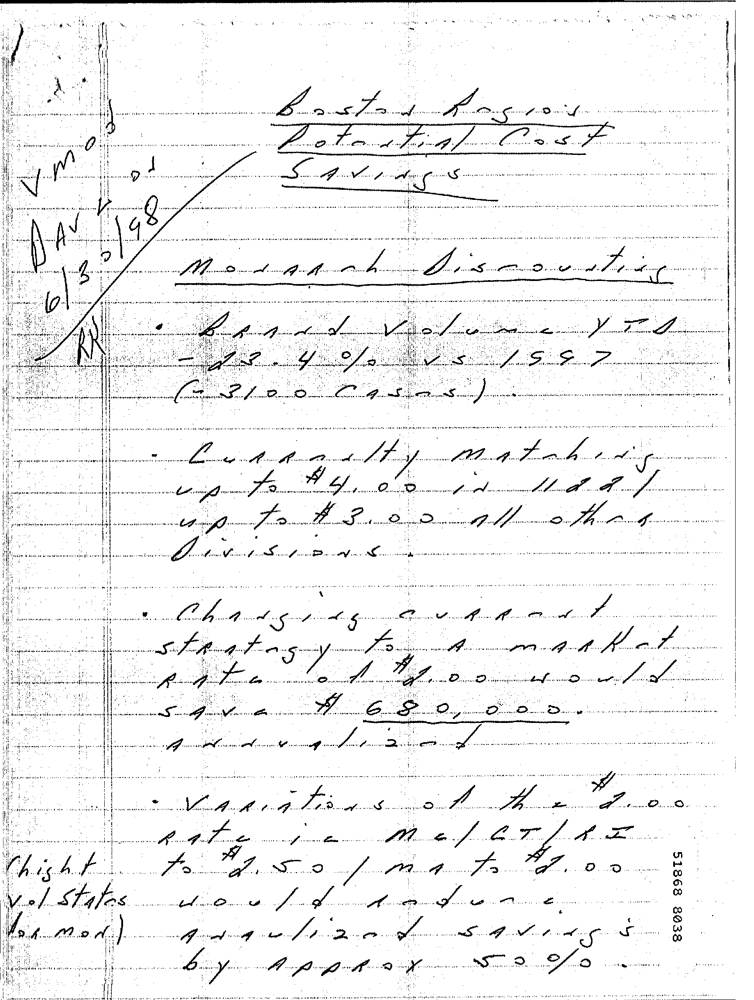 Boston Region
Potential Cost
Savings
VMod
6/30/98
RK
Monarch Discounting
• Brand Volume YTD
- 23.4% vs 1997
(- 3100 Cases).
• Currently matching
up to $4.00 in 1122/
up to $3.00 all other
Divisions.
• Changing current
strategy to a market
rate of $2.00 would
save $ 680,000.
annualized
• Variations of the $2.00
rate ie Me/CT/RI
to $2.50 / MA to $2.00
(hight
vol states
for mon)
would reduce
annulized savings
by approx 50%.
51868 8038